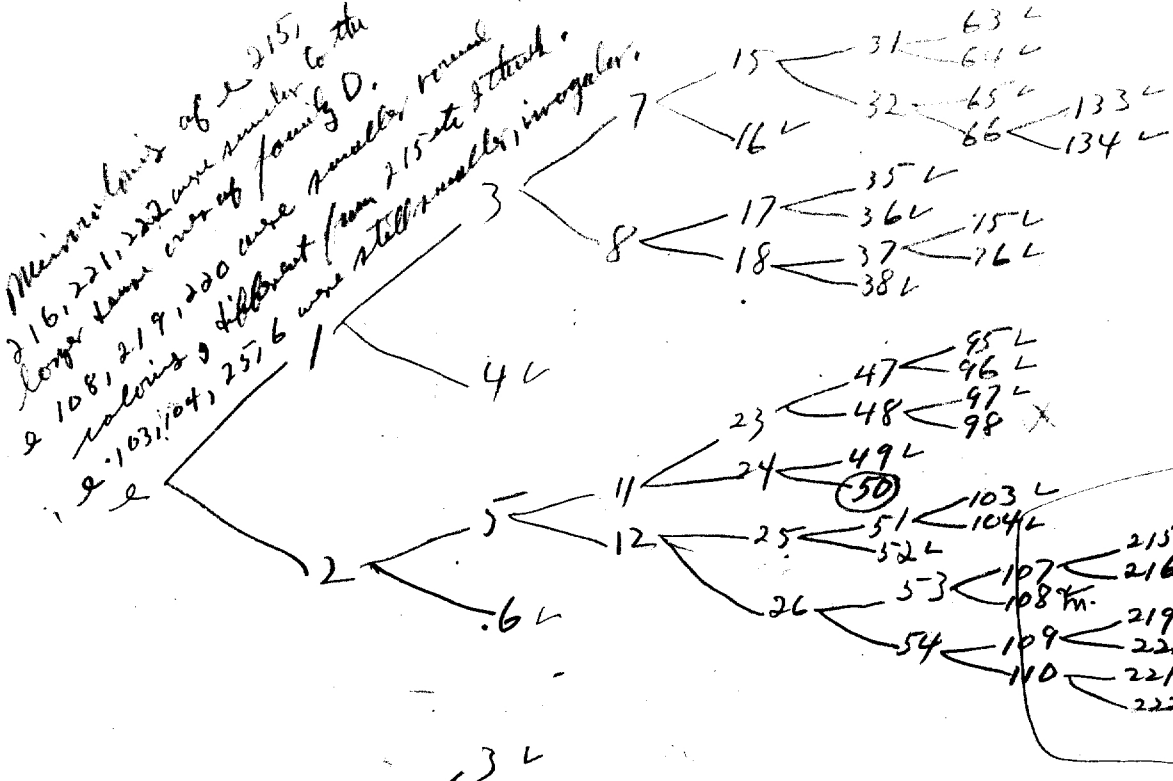 of e 215,
216, 221, 222 were similar to the
larger ones of family D.
e 108, 219, 220 were smaller round
colonies & different from 215 etc I think.
e 103, 104, 25, 6 were still smaller, irregular.
e
1
2
3
4 L
5
6 L
7
8
11
12
15
16 L
17
18
23
24
25
26
31
32
35 L
36 L
37
38 L
47
48
49 L
50
51
52 L
53
54
63 L
64 L
65 L
66
15 L
76 L
95 L
96 L
97 L
98 X
103 L
104 L
107
108 m.
109
110
133 L
134 L
215
216
219
22
221
222
3 L